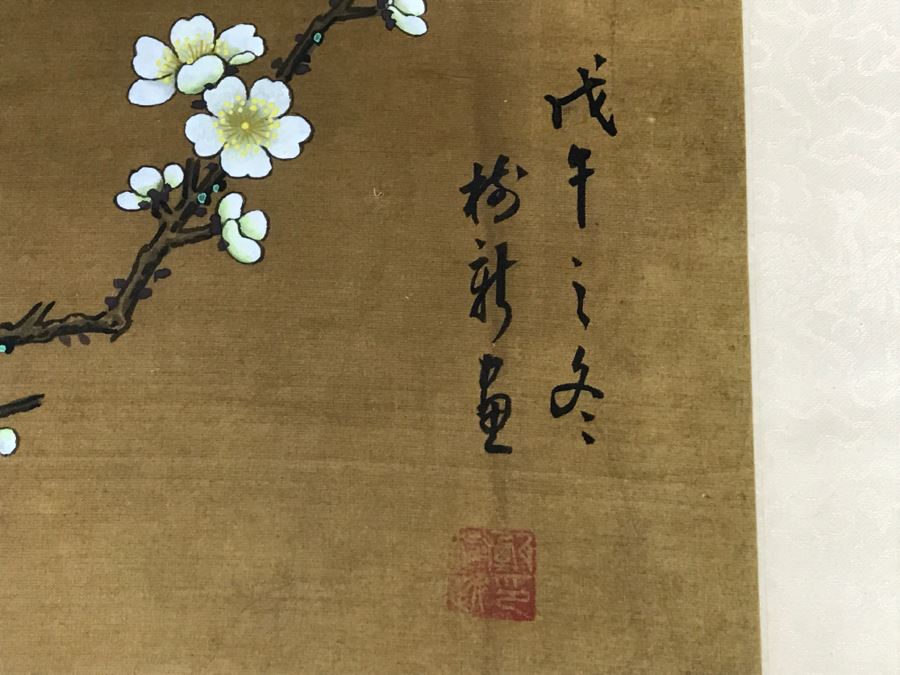 戊午之冬
樹新畫